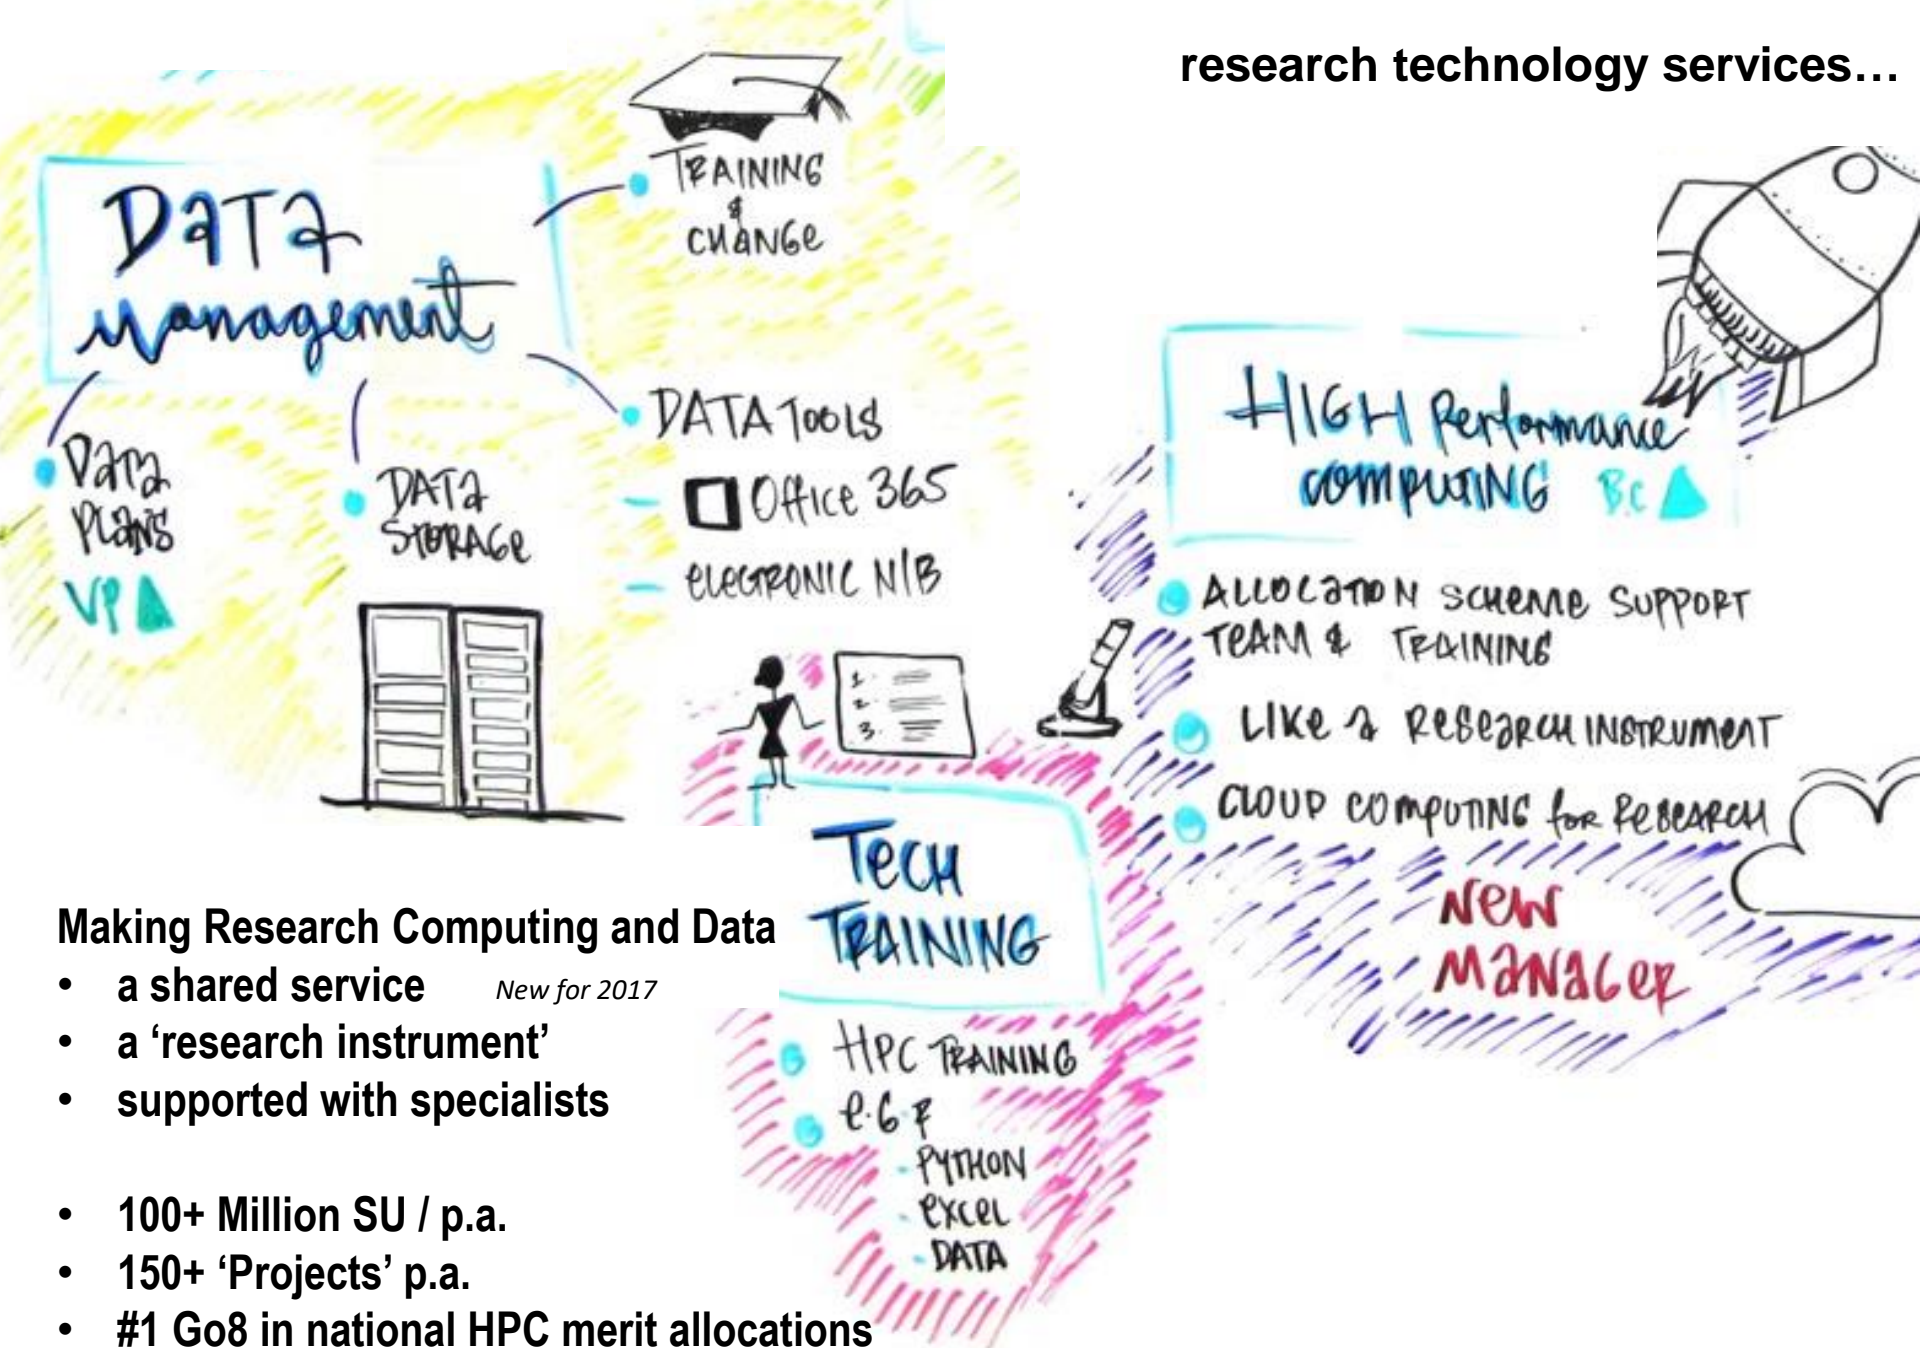 research technology services…
DATA
Management
TRAINING
&
CHANGE
DATA
PLANS
VP
DATA
STORAGE
DATA TOOLS
Office 365
ELECTRONIC N/B
HIGH Performance
COMPUTING B.C
ALLOCATION SCHEME SUPPORT
TEAM & TRAINING
LIKE A RESEARCH INSTRUMENT
CLOUD COMPUTING for RESEARCH
NEW
MANAGER
1.
2.
3.
TECH
TRAINING
HPC TRAINING
e.G. R
- PYTHON
- EXCEL
- DATA
Making Research Computing and Data
• a shared service New for 2017
• a ‘research instrument’
• supported with specialists
• 100+ Million SU / p.a.
• 150+ ‘Projects’ p.a.
• #1 Go8 in national HPC merit allocations